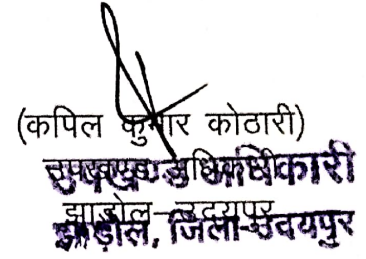 (कपिल कुमार कोठारी)
उपखण्ड अधिकारी
झाड़ोल-उदयपुर
झाड़ोल, जिला-उदयपुर